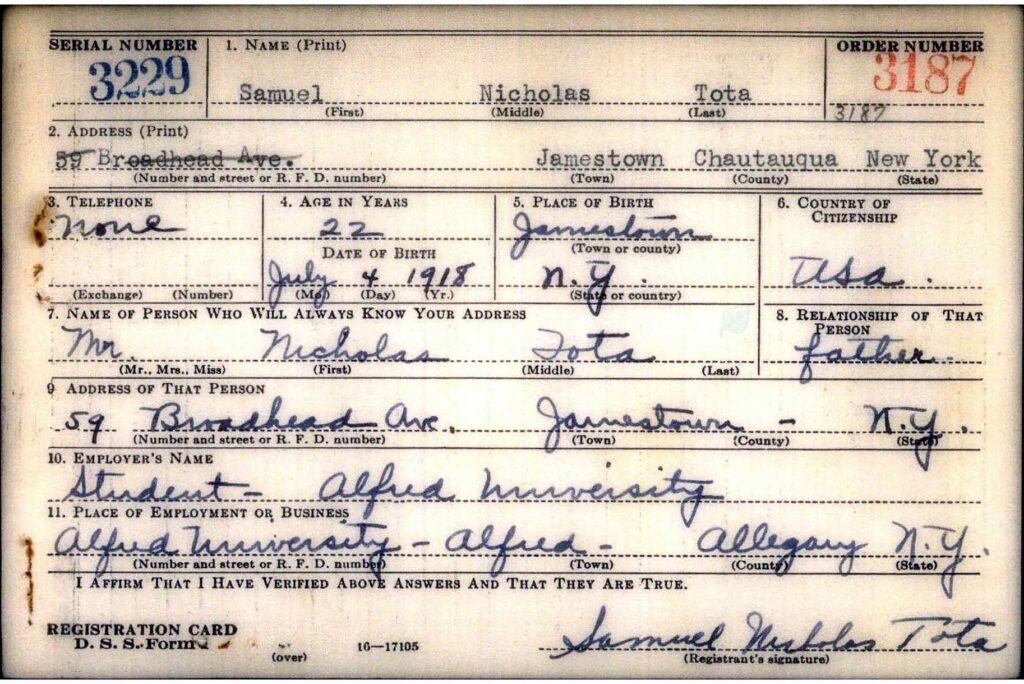 SERIAL NUMBER 1. NAME (Print) ORDER NUMBER
3229 Samuel Nicholas Tota 3187
(First) (Middle) (Last) 3187
2. ADDRESS (Print)
59 Broadhead Ave. Jamestown Chautauqua New York
(Number and street or R. F. D. number) (Town) (County) (State)
3. TELEPHONE 4. AGE IN YEARS 5. PLACE OF BIRTH 6. COUNTRY OF CITIZENSHIP
None 22 Jamestown
(Town or county)
DATE OF BIRTH
July 4 1918 N.Y. USA.
(Exchange) (Number) (Mo.) (Day) (Yr.) (State or country)
7. NAME OF PERSON WHO WILL ALWAYS KNOW YOUR ADDRESS 8. RELATIONSHIP OF THAT PERSON
Mr. Nicholas Tota father
(Mr., Mrs., Miss) (First) (Middle) (Last)
9 ADDRESS OF THAT PERSON
59 Broadhead Ave. Jamestown - N.Y.
(Number and street or R. F. D. number) (Town) (County) (State)
10. EMPLOYER'S NAME
Student - Alfred University
11. PLACE OF EMPLOYMENT OR BUSINESS
Alfred University - Alfred - Allegany N.Y.
(Number and street or R. F. D. number) (Town) (County) (State)
I AFFIRM THAT I HAVE VERIFIED ABOVE ANSWERS AND THAT THEY ARE TRUE.
REGISTRATION CARD
D. S. S. Form
(over) 16—17105 Samuel Nicholas Tota
(Registrant's signature)